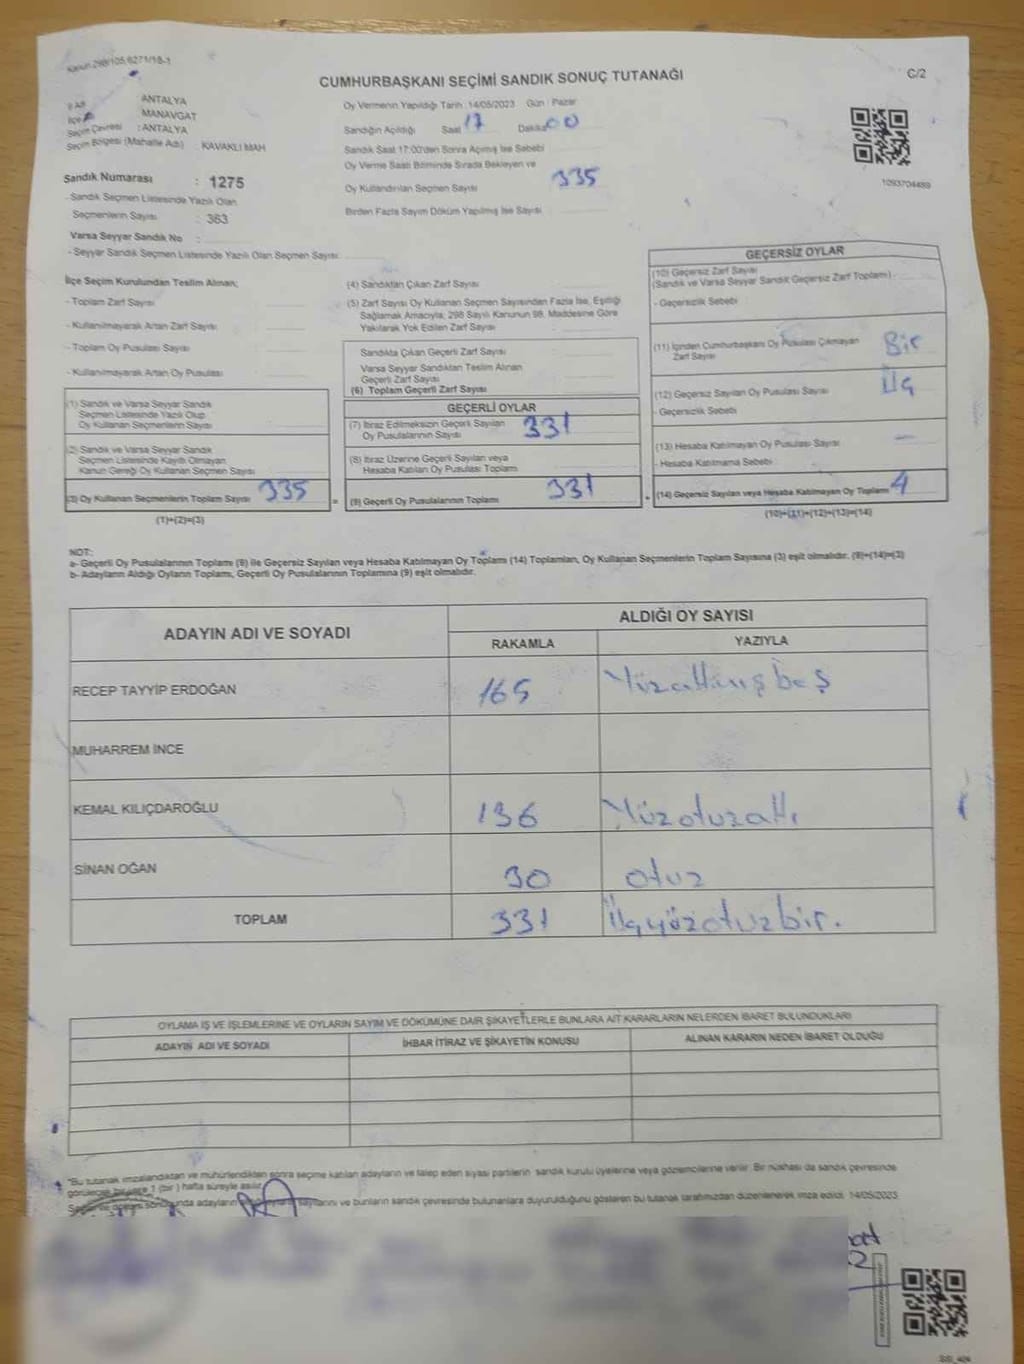 Kanun 298/105,6271/18-1
CUMHURBAŞKANI SEÇİMİ SANDIK SONUÇ TUTANAĞI
C/2
İl Adı ANTALYA
İlçe MANAVGAT
Seçim Çevresi : ANTALYA
Seçim Bölgesi (Mahalle Adı) KAVAKLI MAH
Sandık Numarası : 1275
- Sandık Seçmen Listesinde Yazılı Olan
Seçmenlerin Sayısı : 363
Varsa Seyyar Sandık No :
- Seyyar Sandık Seçmen Listesinde Yazılı Olan Seçmen Sayısı:
Oy Vermenin Yapıldığı Tarih :14/05/2023 Gün : Pazar
Sandığın Açıldığı Saat 17 Dakika 00
Sandık Saat 17:00'den Sonra Açılmış İse Sebebi
Oy Verme Saati Bitiminde Sırada Bekleyen ve
Oy Kullandırılan Seçmen Sayısı 335
Birden Fazla Sayım Döküm Yapılmış İse Sayısı
1093704489
İlçe Seçim Kurulundan Teslim Alınan;
- Toplam Zarf Sayısı
- Kullanılmayarak Artan Zarf Sayısı
- Toplam Oy Pusulası Sayısı
- Kullanılmayarak Artan Oy Pusulası
(1) Sandık ve Varsa Seyyar Sandık
Seçmen Listesinde Yazılı Olup
Oy Kullanan Seçmenlerin Sayısı
(2) Sandık ve Varsa Seyyar Sandık
Seçmen Listesinde Kayıtlı Olmayan
Kanun Gereği Oy Kullanan Seçmen Sayısı
(3) Oy Kullanan Seçmenlerin Toplam Sayısı 335
(1)+(2)=(3)
(4) Sandıktan Çıkan Zarf Sayısı
(5) Zarf Sayısı Oy Kullanan Seçmen Sayısından Fazla İse, Eşitliği
Sağlamak Amacıyla; 298 Sayılı Kanunun 98. Maddesine Göre
Yakılarak Yok Edilen Zarf Sayısı
Sandıkta Çıkan Geçerli Zarf Sayısı
Varsa Seyyar Sandıktan Teslim Alınan
Geçerli Zarf Sayısı
(6) Toplam Geçerli Zarf Sayısı
GEÇERLİ OYLAR
(7) İtiraz Edilmeksizin Geçerli Sayılan
Oy Pusulalarının Sayısı 331
(8) İtiraz Üzerine Geçerli Sayılan veya
Hesaba Katılan Oy Pusulası Toplamı
= (9) Geçerli Oy Pusulalarının Toplamı 331
GEÇERSİZ OYLAR
(10) Geçersiz Zarf Sayısı
(Sandık ve Varsa Seyyar Sandık Geçersiz Zarf Toplamı)
- Geçersizlik Sebebi
(11) İçinden Cumhurbaşkanı Oy Pusulası Çıkmayan
Zarf Sayısı Bir
(12) Geçersiz Sayılan Oy Pusulası Sayısı Üç
- Geçersizlik Sebebi
(13) Hesaba Katılmayan Oy Pusulası Sayısı –
- Hesaba Katılmama Sebebi
+ (14) Geçersiz Sayılan veya Hesaba Katılmayan Oy Toplamı 4
(10)+(11)+(12)+(13)=(14)
NOT:
a- Geçerli Oy Pusulasının Toplamı (9) ile Geçersiz Sayılan veya Hesaba Katılmayan Oy Toplamı (14) Toplamları, Oy Kullanan Seçmenlerin Toplam Sayısına (3) eşit olmalıdır. (9)+(14)=(3)
b- Adayların Aldığı Oyların Toplamı, Geçerli Oy Pusulalarının Toplamına (9) eşit olmalıdır.
ADAYIN ADI VE SOYADI
ALDIĞI OY SAYISI
RAKAMLA YAZIYLA
RECEP TAYYİP ERDOĞAN 165 Yüzaltmışbeş
MUHARREM İNCE
KEMAL KILIÇDAROĞLU 136 Yüzotuzaltı
SİNAN OĞAN 30 otuz
TOPLAM 331 Üçyüzotuzbir.
OYLAMA İŞ VE İŞLEMLERİNE VE OYLARIN SAYIM VE DÖKÜMÜNE DAİR ŞİKAYETLERLE BUNLARA AİT KARARLARIN NELERDEN İBARET BULUNDUKLARI
ADAYIN ADI VE SOYADI İHBAR İTİRAZ VE ŞİKAYETİN KONUSU ALINAN KARARIN NEDEN İBARET OLDUĞU
"Bu tutanak imzalandıktan ve mühürlendikten sonra seçime katılan adayların ve talep eden siyasi partilerin sandık kurulu üyelerine veya gözlemcilerine verilir. Bir nüshası da sandık çevresinde
görülecek bir yere 1 (bir) hafta süreyle asılır.
sayılarını ve bunların sandık çevresinde bulunanlara duyurulduğunu gösteren bu tutanak tarafımızdan düzenlenerek imza edildi. 14/05/2023